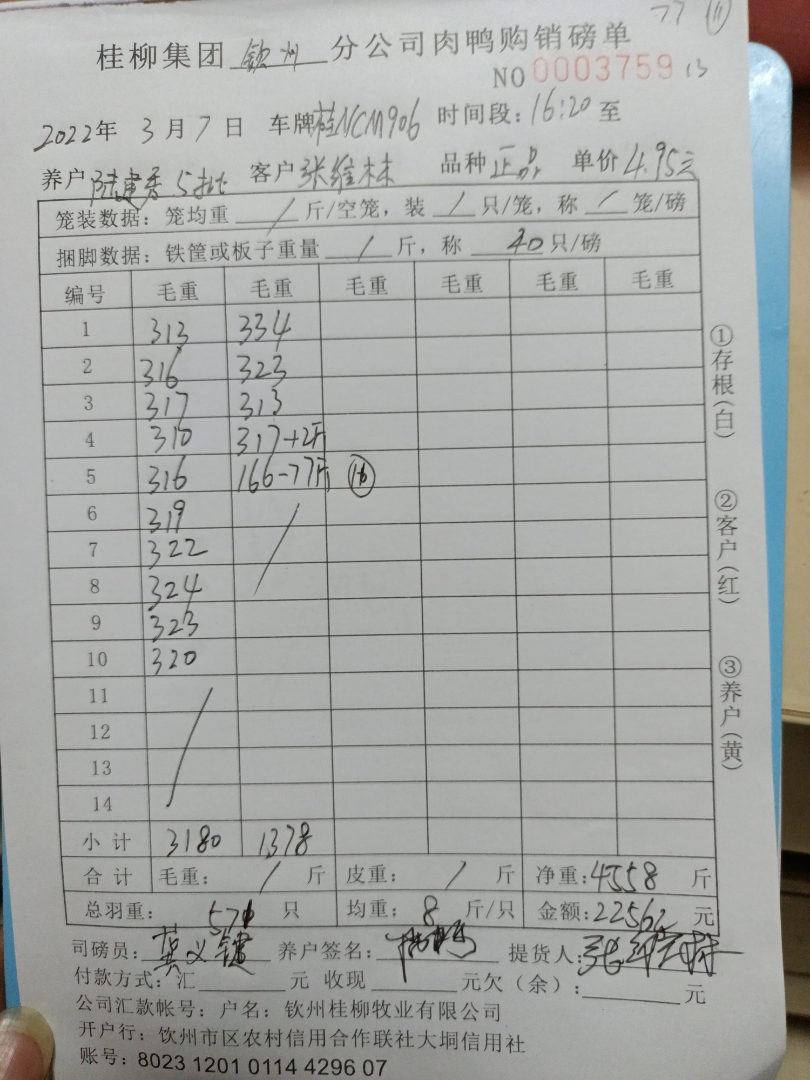 77 (11)
桂柳集团 钦州 分公司肉鸭购销磅单
NO 0003759 13
2022年 3月7日 车牌桂NCM906 时间段:16:20至
养户 陆建香 5批 客户 张维林 品种 正品 单价4.95元
笼装数据:笼均重 / 斤/空笼,装 / 只/笼,称 / 笼/磅
捆脚数据:铁筐或板子重量 / 斤,称 40只/磅
编号 毛重 毛重 毛重 毛重 毛重 毛重
1 313 334
2 316 323
3 317 313
4 310 317+2斤
5 316 166-77斤 (16)
6 319 /
7 322
8 324
9 323
10 320
11 /
12
13
14
小计 3180 1378
合计 毛重: / 斤 皮重: / 斤 净重:4558 斤
总羽重: 576 只 均重: 8 斤/只 金额:22562 元
司磅员: 养户签名: 提货人:
付款方式:汇 元 收现 元欠(余): 元
公司汇款帐号:户名:钦州桂柳牧业有限公司
开户行:钦州市区农村信用合作联社大垌信用社
账号:8023 1201 0114 4296 07
①存根(白)
②客户(红)
③养户(黄)